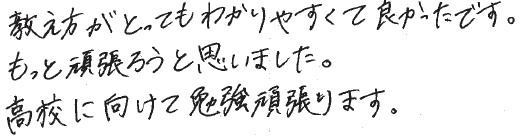 教え方がとってもわかりやすくて良かったです。
もっと頑張ろうと思いました。
高校に向けて勉強頑張ります。